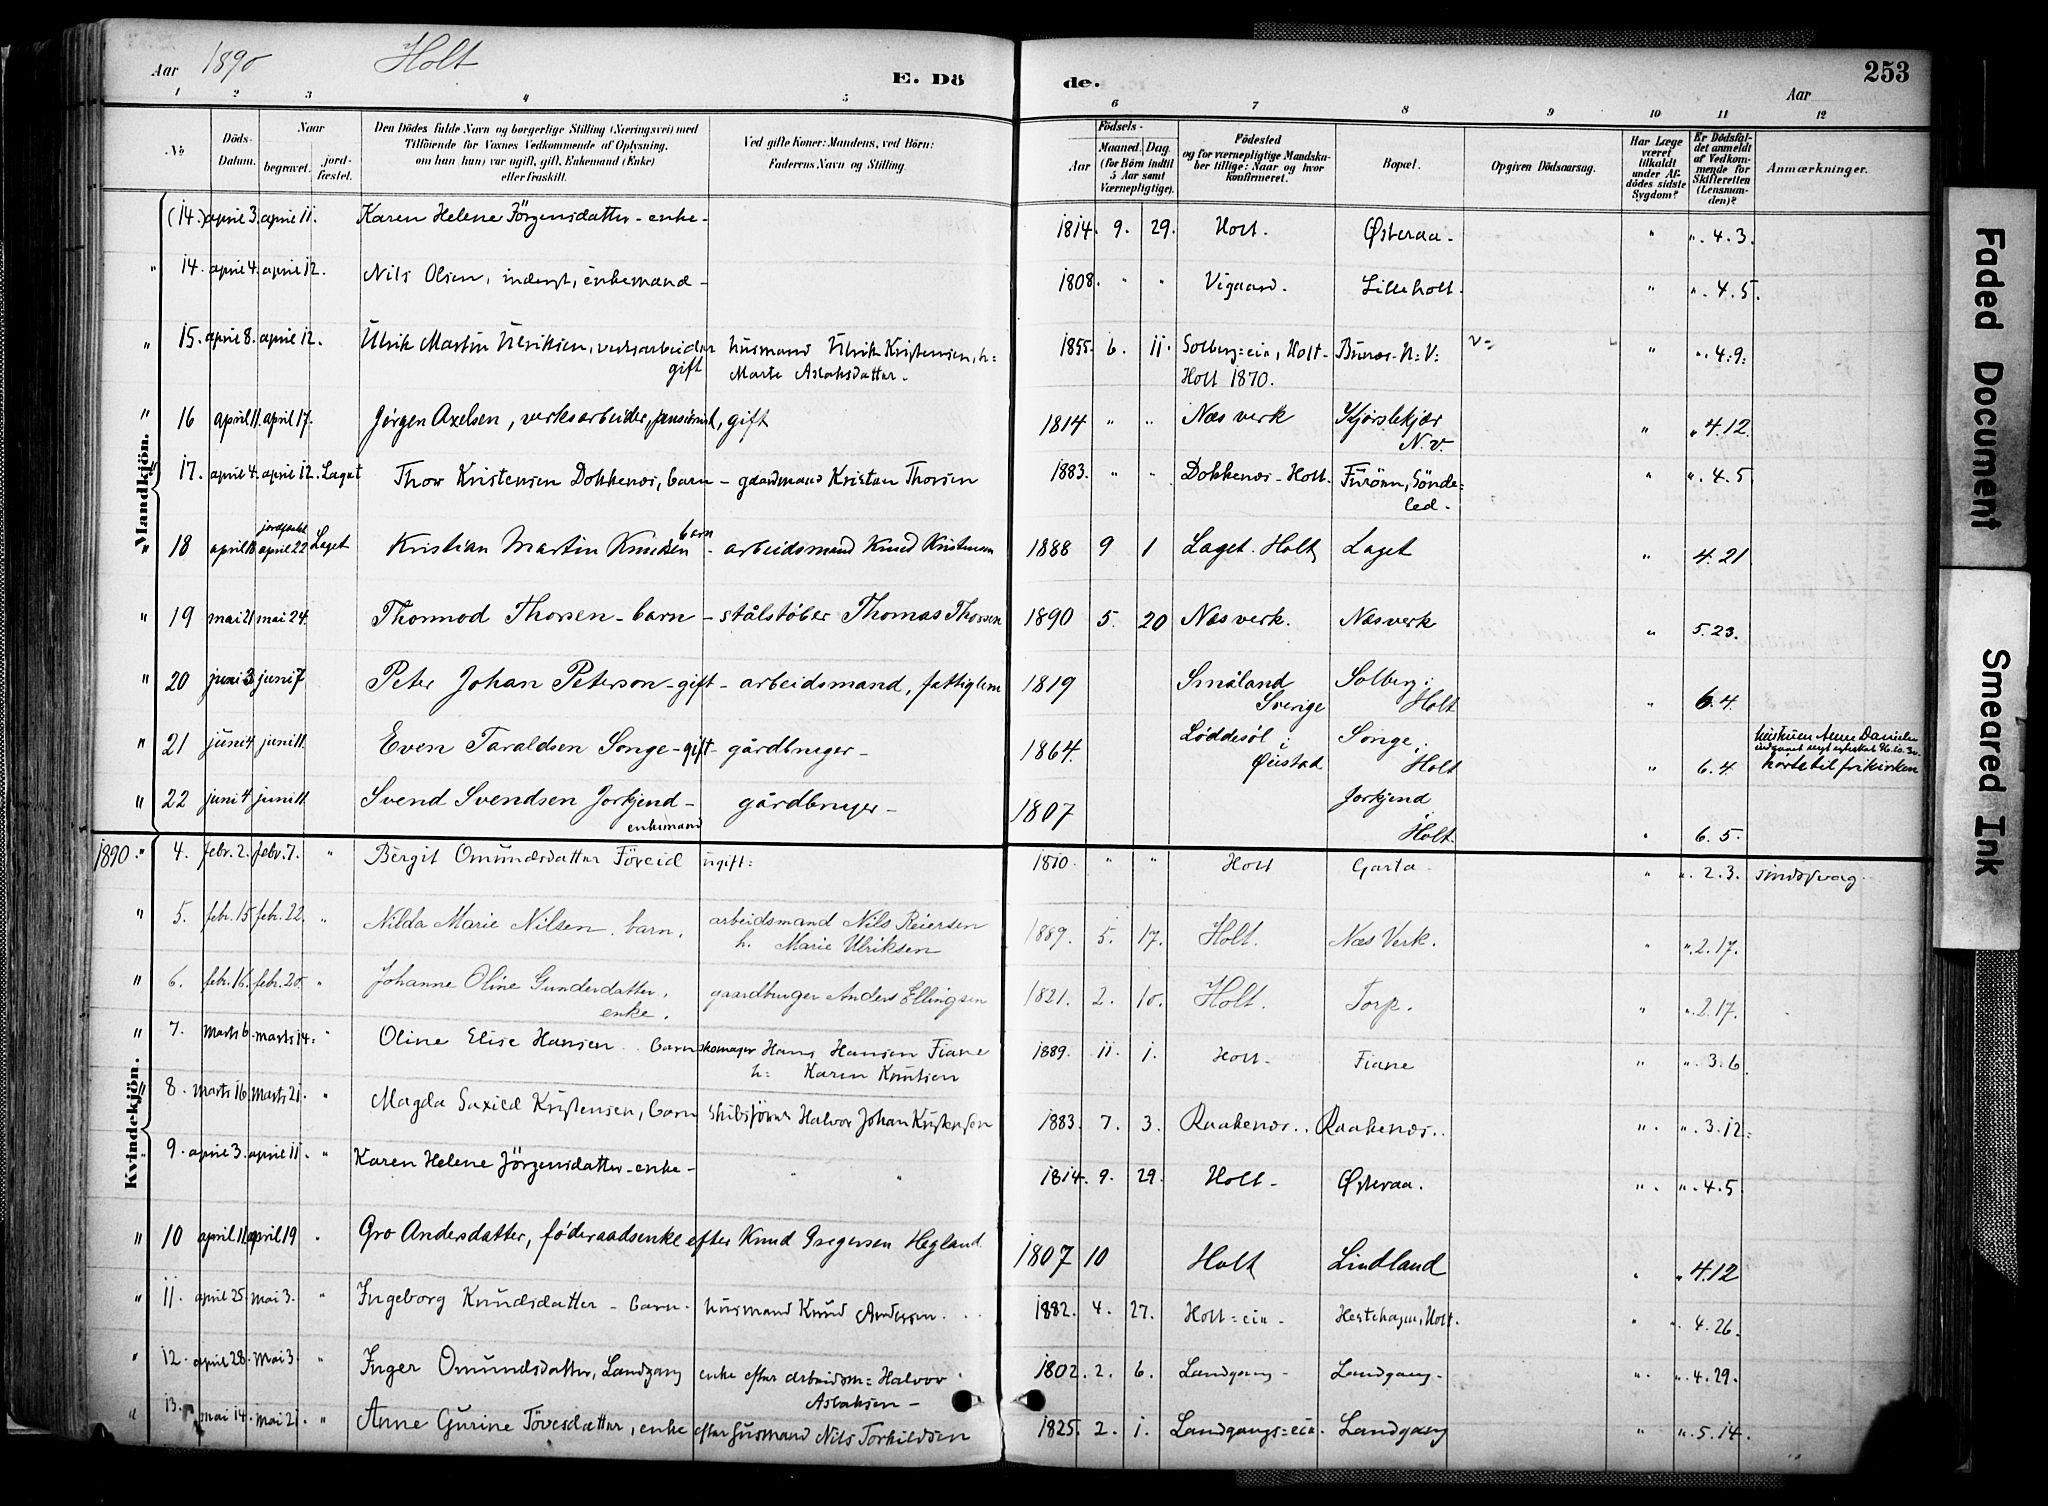 Aar 1890 Holt E. Dö de. Aar 253
1 2 3 4 5 6 7 8 9 10 11 12
No Döds-Datum. Naar begravet. jord-fæstet. Den Dödes fulde Navn og borgerlige Stilling (Næringsvei) med Tilföiende for Voxnes Vedkommende af Oplysning, om han (hun) var ugift, gift, Enkemand (Enke) eller fraskilt. Ved gifte Koner: Mandens, ved Börn: Faderens Navn og Stilling. Födsels- Aar Maaned. Dag. (for Börn indtil 5 Aar samt Værnepligtige). Födested og for værnepligtige Mandska-ber tillige: Naar og hvor konfirmeret. Bopæl. Opgiven Dödsaarsag. Har Læge været tilkaldt under Af-dödes sidste Sygdom? Er Dödsfal-det anmeldt af Vedkom-mende for Skifteretten (Lensman-den)? Anmærkninger.
Mandkjön.
(14.) april 3. april 11. Karen Helene Jörgensdatter - enke - 1814. 9. 29. Holt. Østeraa. " ". 4. 3.
" 14. april 4. april 12. Nils Olsen, inderst, enkemand - 1808. " " Vigaard. Lilleholt. " ". 4. 5.
" 15. april 8. april 12. Ulrik Martin Ulriksen, verksarbeider husmand Ulrik Kristensen, h: 1855. 6. 11. Solberg=eie, Holt - Buraas - N: V: " ". 4. 9.
gift Marte Aslaksdatter. Holt 1870.
" 16 april 11. april 17. Jörgen Axelsen, verksarbeider, pensionist, gift 1814 " " Næs verk Kjörslekjær " " 4. 12.
N. v.
" 17. april 4. april 12. Laget Thor Kristensen Dokkenæs, barn - gaardmand Kristen Thorsen 1883. " " Dokkenæs - Holt. Furöen, Sönde= " ". 4. 5.
led.
jordfæstet
" 18 april 22 Laget Kristian Martin Knudsen barn - arbeidsmand Knud Kristensen 1888 9 1 Laget. Holt Laget " 4. 21
" 19 mai 21 mai 24. Thormod Thorsen - barn - stålstöber Thomas Thorsen 1890 5. 20 Næs verk. Næs verk " 5. 23.
" 20 juni 3 juni 7 Peter Johan Peterson - gift - arbeidsmand, fattiglem 1819 Småland Solberg: " 6. 4.
Sverige Holt
" 21 juni 4. juni 11. Even Taraldsen Songe - gift - gårdbruger - 1864. Løddesøl: Songe: " 6. 4
Øiestad Holt hørte til frikirken
" 22 juni 4 juni 11. Svend Svendsen Jorkjend - gårdbruger - 1807 Jorkjend
enkemand Holt. " 6. 5.
Kvindekjön.
1890. " 4. febr. 2. febr. 7. " Bergit Omundsdatter Föreid ugift: 1810. " " Holt Garta. " ". 2. 3. sindssvag.
" 5. febr. 15. febr. 22. " Nilda Marie Nilsen, barn. arbeidsmand Nils Reiersen 1889. 5. 17. Holt. Næs Verk. " ". 2. 17.
h. Marie Ulriksen
" 6. febr. 16. febr. 20. " Johanne Oline Gundersdatter, gaardbruger Anders Ellingsen 1821. 2. 10. Holt. Torp. " ". 2. 17.
enke.
" 7. marts 6. marts 14. " Oline Elise Hansen. barn skomager Hans Hansen Fiane 1889. 11. 1. Holt. Fiane " ". 3. 6.
h: Karen Knutsen
" 8. marts 16. marts 21. " Magda Saxild Kristensen, barn skibsförer Halvor Johan Kristensen 1883. 7. 3. Raakenæs.. Raakenæs.. " ". 3. 12:
" 9. april 3. april 11. " Karen Helene Jörgensdatter - enke - " " 1814. 9. 29. Holt - Østeraa. " ". 4. 5.
" 10 april 11. april 19 " Gro Andersdatter, føderaadsenke efter Knud Gregersen Hegland. 1807 10 Holt Lindland " " 4. 12
" 11. april 25. mai 3. " Ingeborg Knudsdatter - barn. husmand Knud Andersen. 1882. 4. 27. Holt=eie - Hestehagen, Holt. " ". 4. 26.
" 12. april 28. mai 3. " Inger Omundsdatter, Landgang enke efter arbeidsm: Halvor 1802. 2. 6. Landgang - Landgang - " ". 4. 29.
Aslaksen -
" 13. mai 14. mai 21. " Anne Gurine Tövesdatter, enke efter husmand Nils Torkildsen 1825. 2. 1. Landgangs=eie. Landgang " ". 5. 14.
Faded Document
Smeared Ink